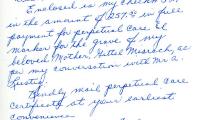 Enclosed is my check #
in the amount of $257.00 in full
payment for perpetual care &
marker for the grave of my
beloved Mother, Gittel Misrach, as
per my conversation with Mr A
Lustig.
Kindly mail perpetual care
certificate at your earliest
convenience